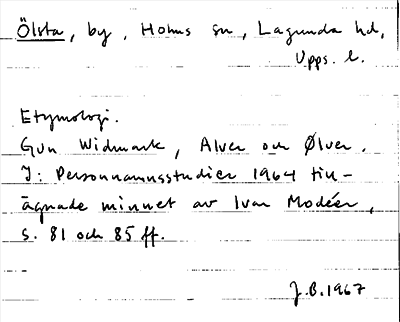 Ölsta, by, Holms sn, Lagunda hd,
Upps. l.
Etymologi.
Gun Widmark, Alver och Ølver.
I: Personnamnsstudier 1964 till-
ägnade minnet av Ivar Modéer,
s. 81 och 85 ff.
J.B. 1967